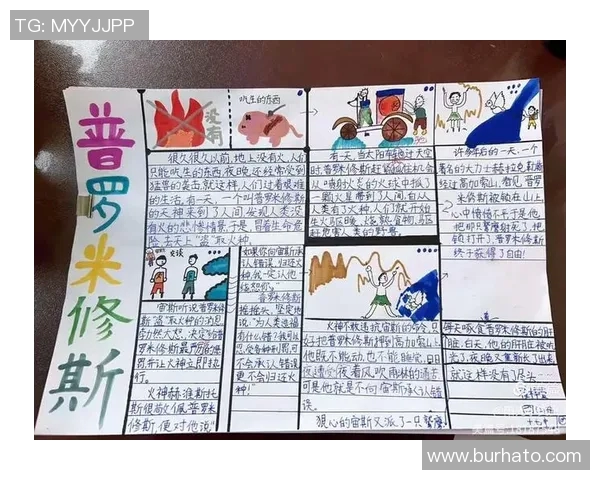 TG: MYYJJPP
普罗米修斯
没有
吃生的东西
很久很久以前,地上没有火,人们
只能吃生的东西,夜晚还经常受到
猛兽的袭击,就这样,人们过着艰难
的生活。有一天,一个叫普罗米修斯
的天神来到了人间,发现人类没
有火的悲惨情景,于是,冒着生命危
险,去天上"盗"取火种。
有一天,当太阳车
时,普罗米修斯
从
一颗火星,带到了人间,自从
人类有了火种,人们就开始
生火取暖、烧熟食物、驱
赶危害人类的野兽。
许多年后的一天,一个
著名的大力士赫拉克勒斯
经过高加索山,看见普罗
米修斯被锁在山上,
心中愤愤不平,于是他
他即只鹫鹰射死了,把
锁打开了,普罗米修斯
终于获得了自由!
交谈
宙斯听说普罗米
修斯"盗"取火种的消息,
勃然大怒,决定给普
罗米修斯最严厉的惩
罚,并让火神立即执
行。
火神赫淮斯托
斯很敬佩普罗米
修斯,便对他说"
如果你向宙斯承
认错误,归还火
种,我一定让他
饶恕你。"
普罗米修斯
摇摇头,坚定地
说:"为人类造福
有什么错?我可以
忍受各种刑罚,可
不会承认错误,
更不会归还火
种!"
火神不敢违抗宙斯的命令,只
好把普罗米修斯押到高加索山上,
他既不能动,也不能睡觉,日日
夜夜遭受着风吹雨林的痛苦,
可是他就是不向宙斯承认错
误。
狠心的宙斯又派了一只鹫鹰,
每天啄食普罗米修斯的肝
脏。白天,他的肝脏被吃
光了,夜晚又重新长了出来,
就这样没有了尽头……
www.burhato.com